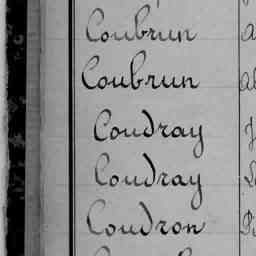 Coubrun
Coubrun
Coudray
Coudray
Coudron